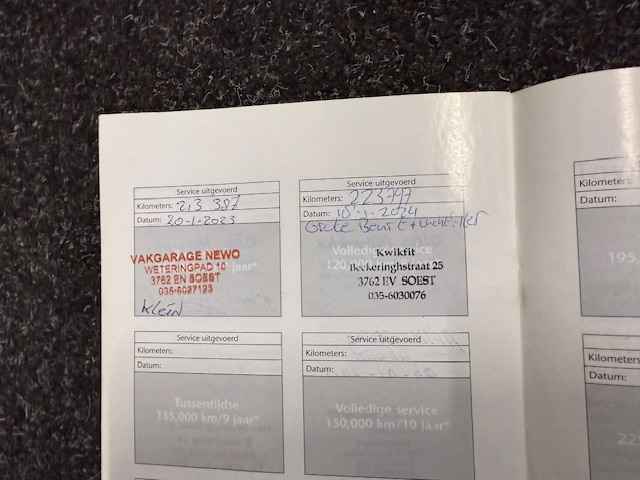 Service uitgevoerd
Kilometers: 213 387
Datum: 20-1-2023
jaar*
VAKGARAGE NEWO
WETERINGPAD 10
3762 EN SOEST
035-6027123
Klein
Service uitgevoerd
Kilometers: 223797
Datum: 10-1-2024
Grote Beurt +
Volledige service
120,000
Kwikfit
Beckeringhstraat 25
3762 EV SOEST
035-6030076
Kilometers:
Datum:
195,
Service uitgevoerd
Kilometers:
Datum:
Tussentijdse
135,000 km/9 jaar*
Service uitgevoerd
Kilometers:
Datum:
Volledige service
150,000 km/10 jaar*
Kilometers
Datum: